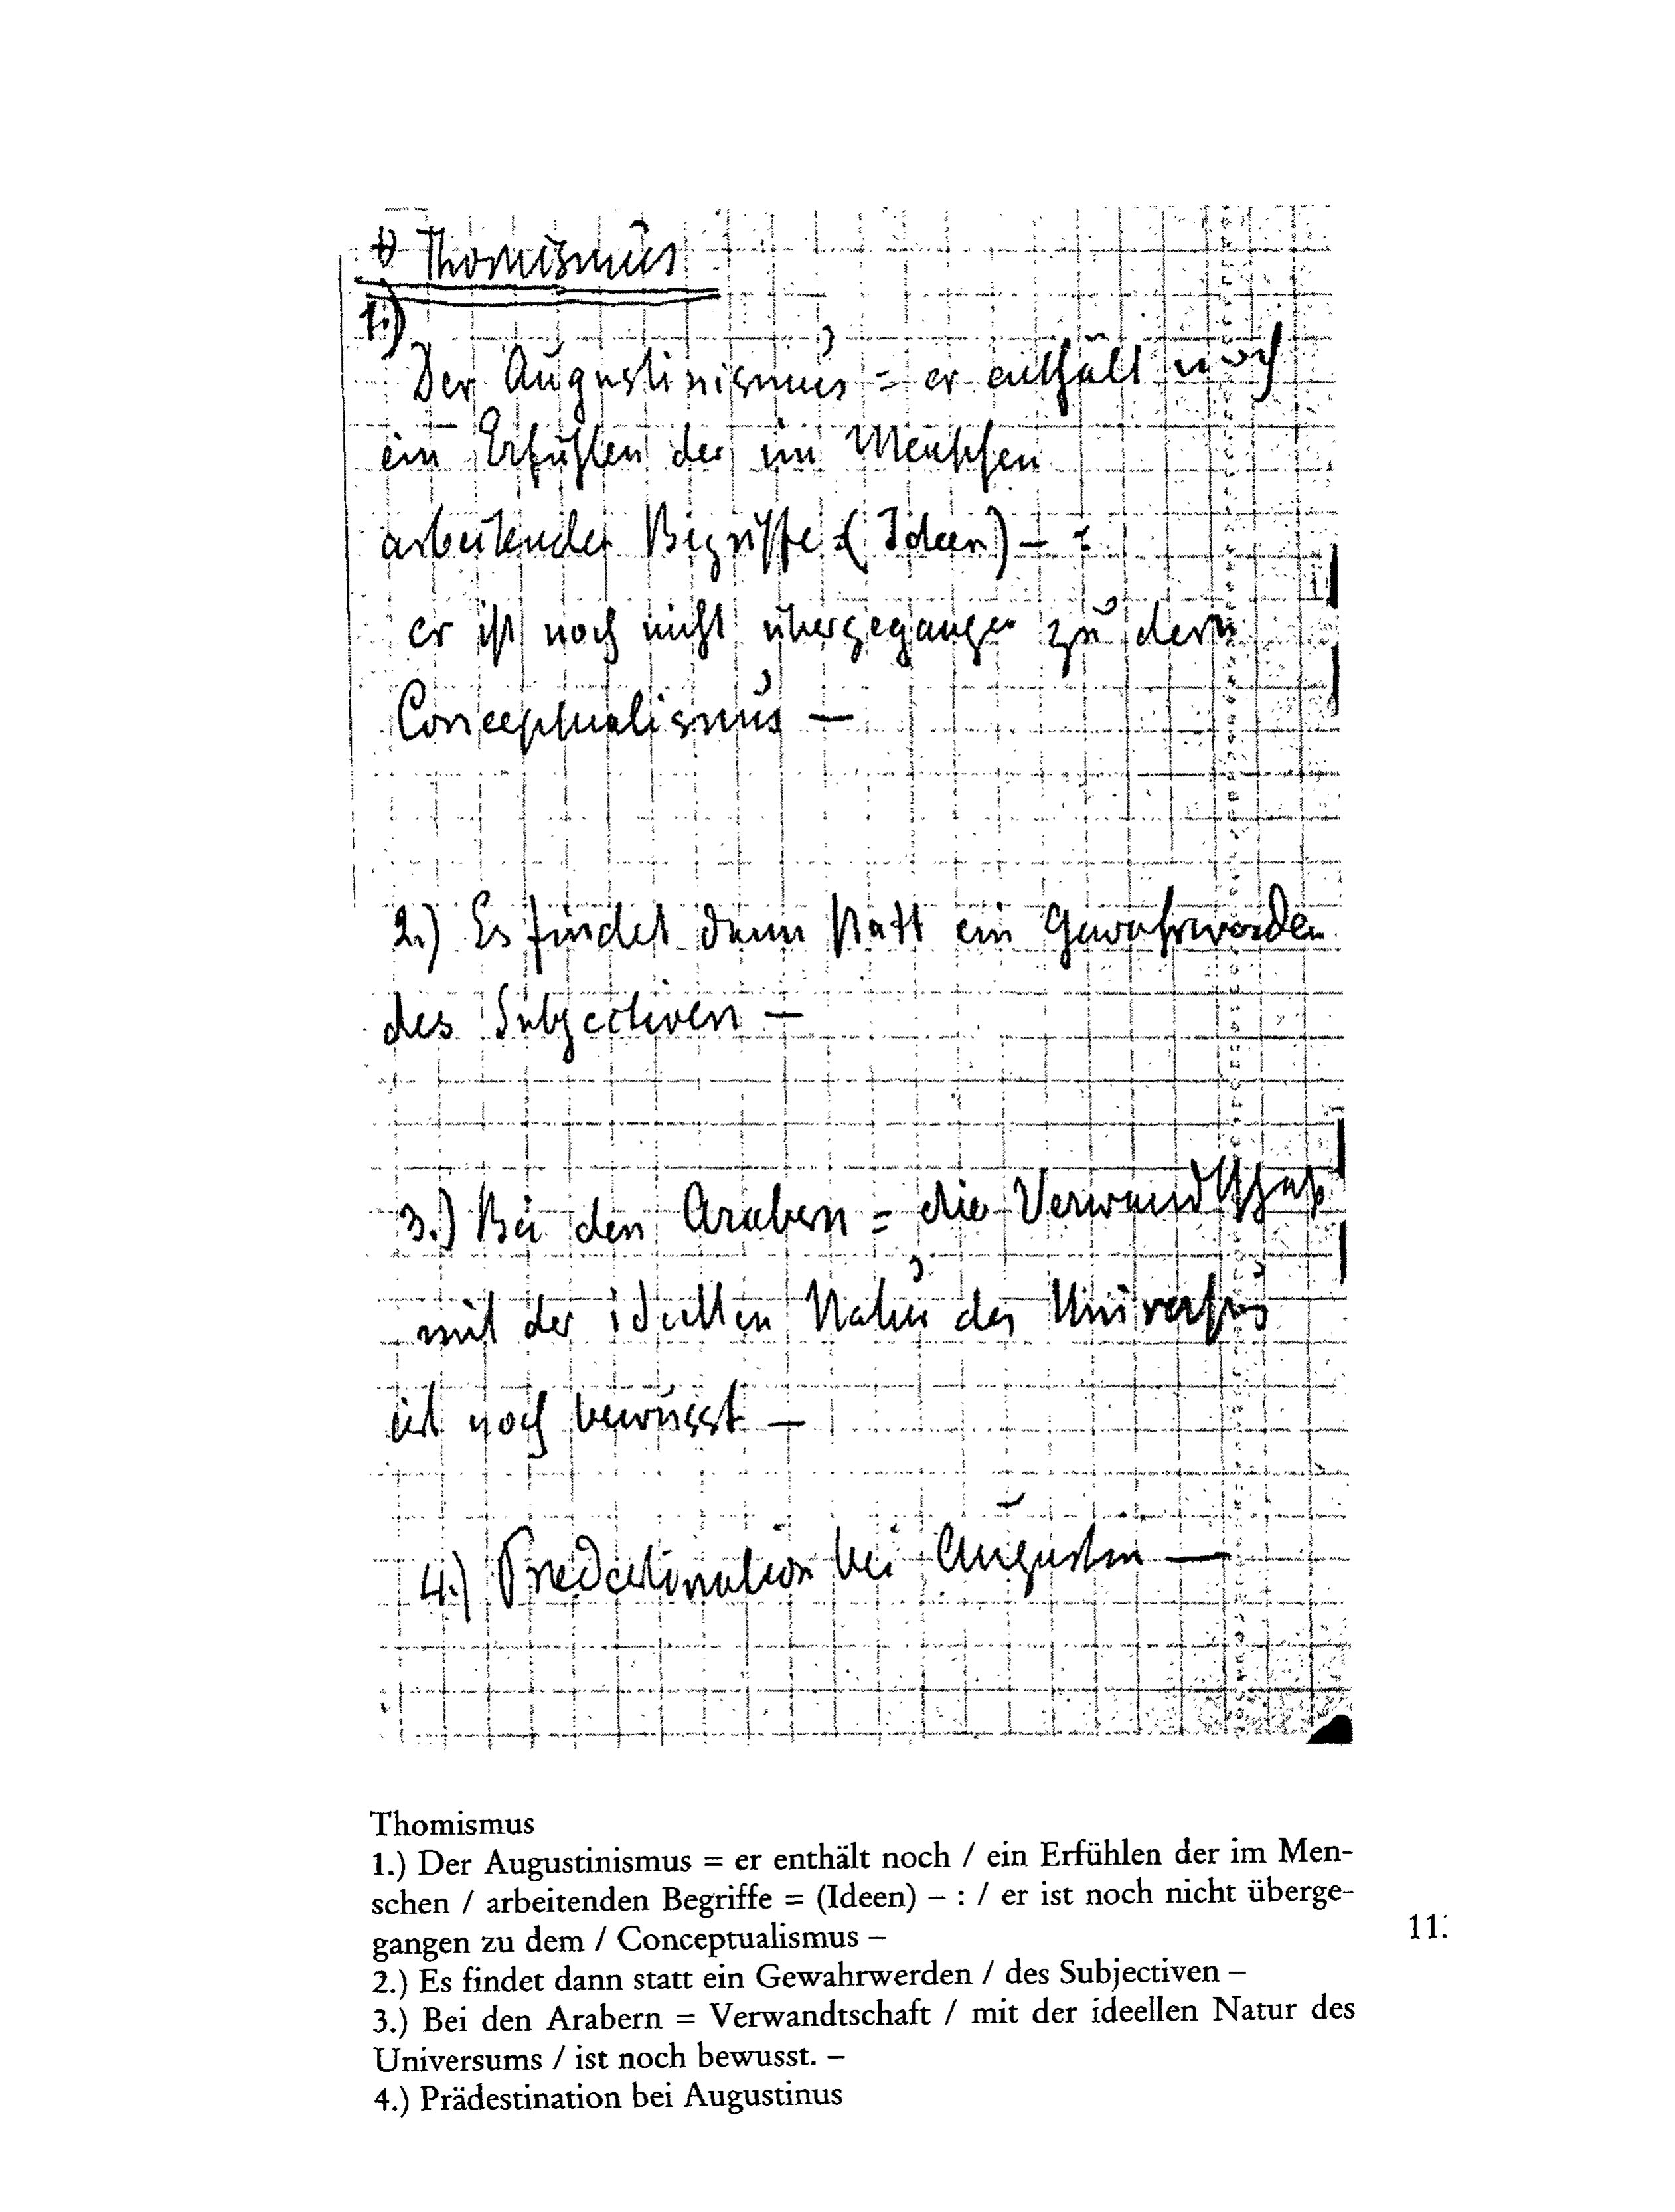 †) Thomismus
1.)
Der Augustinismus = er enthält noch
ein Erfühlen der im Menschen
arbeitenden Begriffe = (Ideen) – :
er ist noch nicht übergegangen zu dem
Conceptualismus –
2.) Es findet dann statt ein Gewahrwerden
des Subjectiven –
3.) Bei den Arabern = die Verwandtschaft
mit der ideellen Natur des Universums
ist noch bewusst –
4.) Praedestination bei Augustin —
Thomismus
1.) Der Augustinismus = er enthält noch / ein Erfühlen der im Men-
schen / arbeitenden Begriffe = (Ideen) – : / er ist noch nicht überge-
gangen zu dem / Conceptualismus –
11.
2.) Es findet dann statt ein Gewahrwerden / des Subjectiven –
3.) Bei den Arabern = Verwandtschaft / mit der ideellen Natur des
Universums / ist noch bewusst. –
4.) Prädestination bei Augustinus